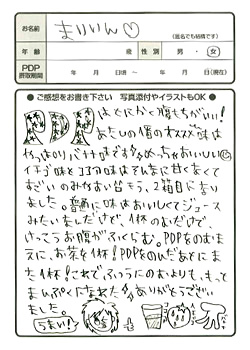 お名前
まりりん♡
(匿名でも結構です)
年齢 歳 性別 男・女
PDP摂取期間 年 月 日頃 ～ 年 月 日(現在)
● ご感想をお書き下さい 写真添付やイラストもOK ●
PDP はとにかく腹もちがいい!
あたしの1番のオススメ味は
やっぱりバナナですがめっちゃおいしい
イチゴ味とココア味はそんなに甘くなくて
すごいのみやすい
もう、2箱目に
ました。普通に味はおいしくてジュース
みたいなんだけど、1杯のむだけで、
けっこうお腹がふくらむ。PDPをのむま
えに、お茶を1杯!PDPをのんだあとにま
た1杯!これで、ふつうにのむよりも、もって
まんぷくになれた ありがとうござい
ました。
うまい!